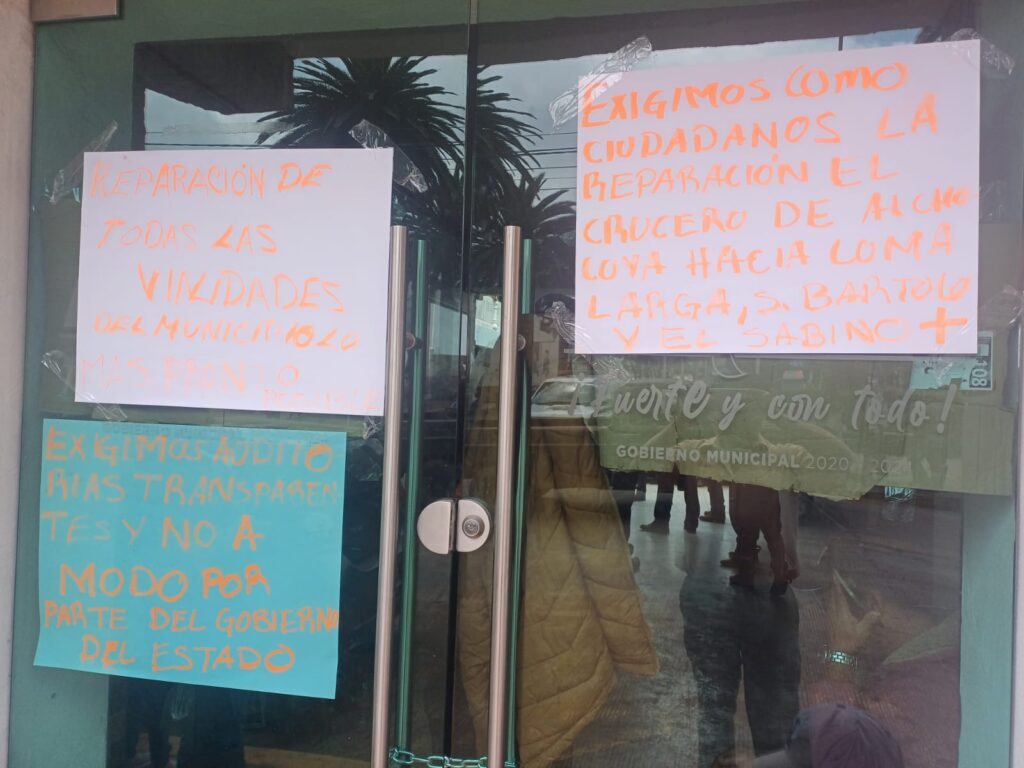 REPARACIÓN DE
TODAS LAS
VIALIDADES
DEL MUNICIPIO LO
MAS PRONTO
POSIBLE
EXIGIMOS AUDITO
RIAS TRANSPAREN
TES Y NO A
MODO POR
PARTE DEL GOBIERNO
DEL ESTADO
EXIGIMOS COMO
CIUDADANOS LA
REPARACIÓN EL
CRUCERO DE ALCHO
COYA HACIA LOMA
LARGA, S. BARTOLO
Y EL SABINO +
¡Fuerte y con todo!
GOBIERNO MUNICIPAL 2020